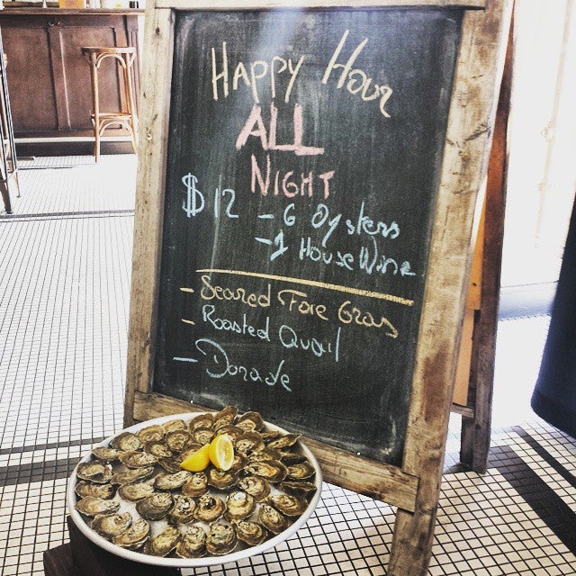 Happy Hour
ALL
NIGHT
$12 - 6 Oysters
- 1 House Wine
- Seared Foie Gras
- Roasted Quail
- Dorade